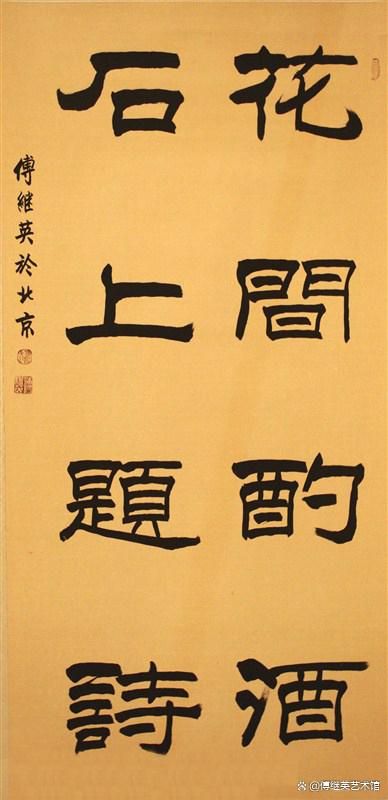 花間酌酒
石上題詩
傅继英於北京
@傅继英艺术馆